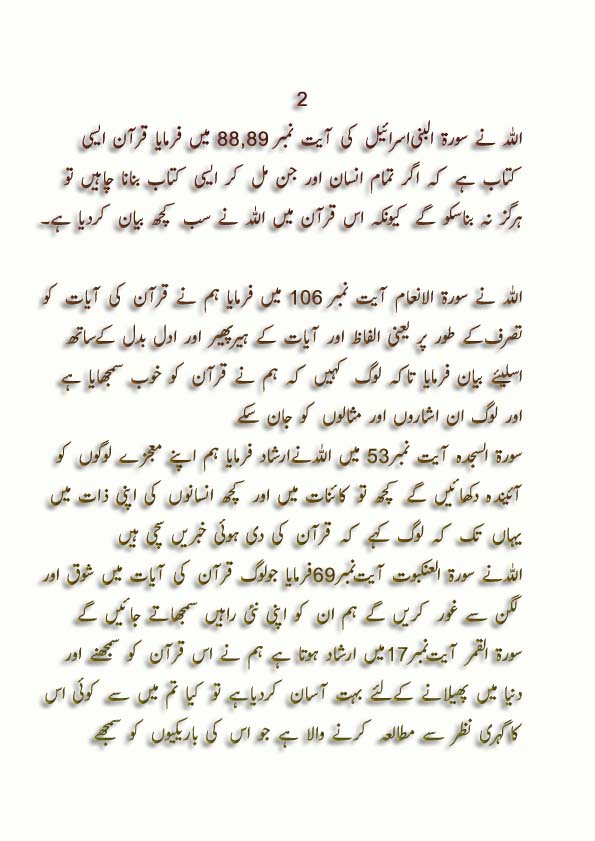 2
اللہ نے سورۃ البنی اسرائیل کی آیت نمبر 88,89 میں فرمایا قرآن ایسی
کتاب ہے کہ اگر تمام انسان اور جن مل کر ایسی کتاب بنانا چاہیں تو
ہرگز نہ بناسکو گے کیونکہ اس قرآن میں اللہ نے سب کچھ بیان کردیا ہے۔
اللہ نے سورۃ الانعام آیت نمبر 106 میں فرمایا ہم نے قرآن کی آیات کو
تصرف کے طور پر یعنی الفاظ اور آیات کے ہیرپھیر اور ادل بدل کے ساتھ
اسلیئے بیان فرمایا تاکہ لوگ کہیں کہ ہم نے قرآن کو خوب سمجھایا ہے
اور لوگ ان اشاروں اور مثالوں کو جان سکے
سورۃ السجدہ آیت نمبر53 میں اللہ نے ارشاد فرمایا ہم اپنے معجزے لوگوں کو
آئیندہ دکھائیں گے کچھ تو کائنات میں اور کچھ انسانوں کی اپنی ذات میں
یہاں تک کہ لوگ کہے کہ قرآن کی دی ہوئی خبریں سچی ہیں
اللہ نے سورۃ العنکبوت آیت نمبر69 فرمایا جولوگ قرآن کی آیات میں شوق اور
لگن سے غور کریں گے ہم ان کو اپنی نئی راہیں سمجھاتے جائیں گے
سورۃ القمر آیت نمبر17 میں ارشاد ہوتا ہے ہم نے اس قرآن کو سمجھنے اور
دنیا میں پھیلانے کے لئے بہت آسان کردیا ہے تو کیا تم میں سے کوئی اس
کا گہری نظر سے مطالعہ کرنے والا ہے جو اس کی باریکیوں کو سمجھے